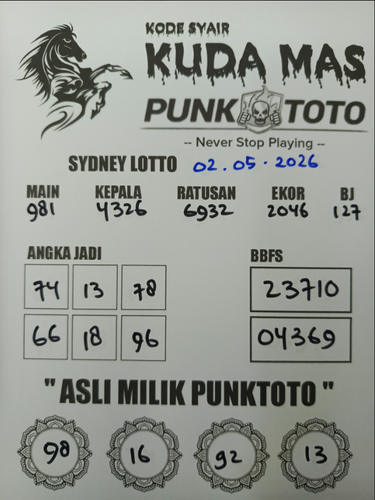 KODE SYAIR
KUDA MAS
PUNK TOTO
-- Never Stop Playing --
SYDNEY LOTTO 02.05.2026
MAIN KEPALA RATUSAN EKOR BJ
981 4326 6932 2046 127
ANGKA JADI BBFS
74 13 78 23710
66 18 96 04369
" ASLI MILIK PUNKTOTO "
98 16 92 13